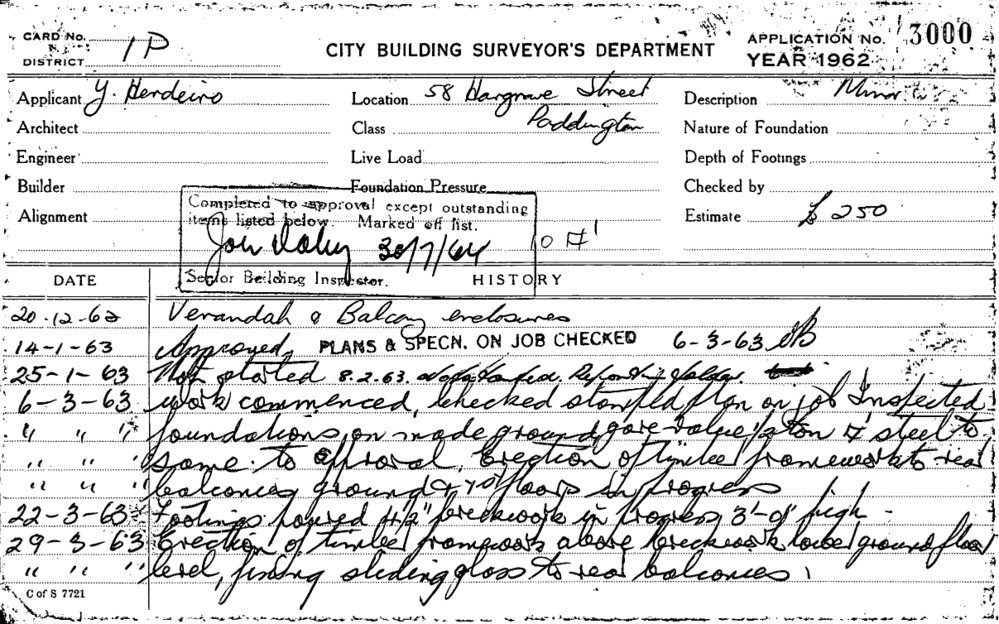 CARD No.
DISTRICT 1P
CITY BUILDING SURVEYOR'S DEPARTMENT
APPLICATION No. 3000
YEAR 1962
Applicant Y. Herdeiro
Location 58 Hargrave Street
Paddington
Description Minor
Architect
Class
Nature of Foundation
Engineer
Live Load
Depth of Footings
Builder
Foundation Pressure
Checked by
Alignment
Estimate £ 250
Completed to approval except outstanding
items listed below. Marked off list.
30/7/64
Senior Building Inspector.
DATE
HISTORY
20.12.62 Verandah & Balcony enclosures
14-1-63 Approved, PLANS & SPECN. ON JOB CHECKED 6-3-63
25-1-63 Not started 8.2.63.
6-3-63 work commenced, checked stamped plan on job Inspected
" " " foundations on made ground gave value 1/2 ton & steel to
" " " same to approval. Erection of timber framework to rear
" " " balconies ground & floors in progress
22-3-63 Footings poured brickwork in progress 3'-0" high
29-3-63 Erection of timber framework above brickwork lower ground floor
" " " level, fixing sliding glass to rear balconies
C of S 7721